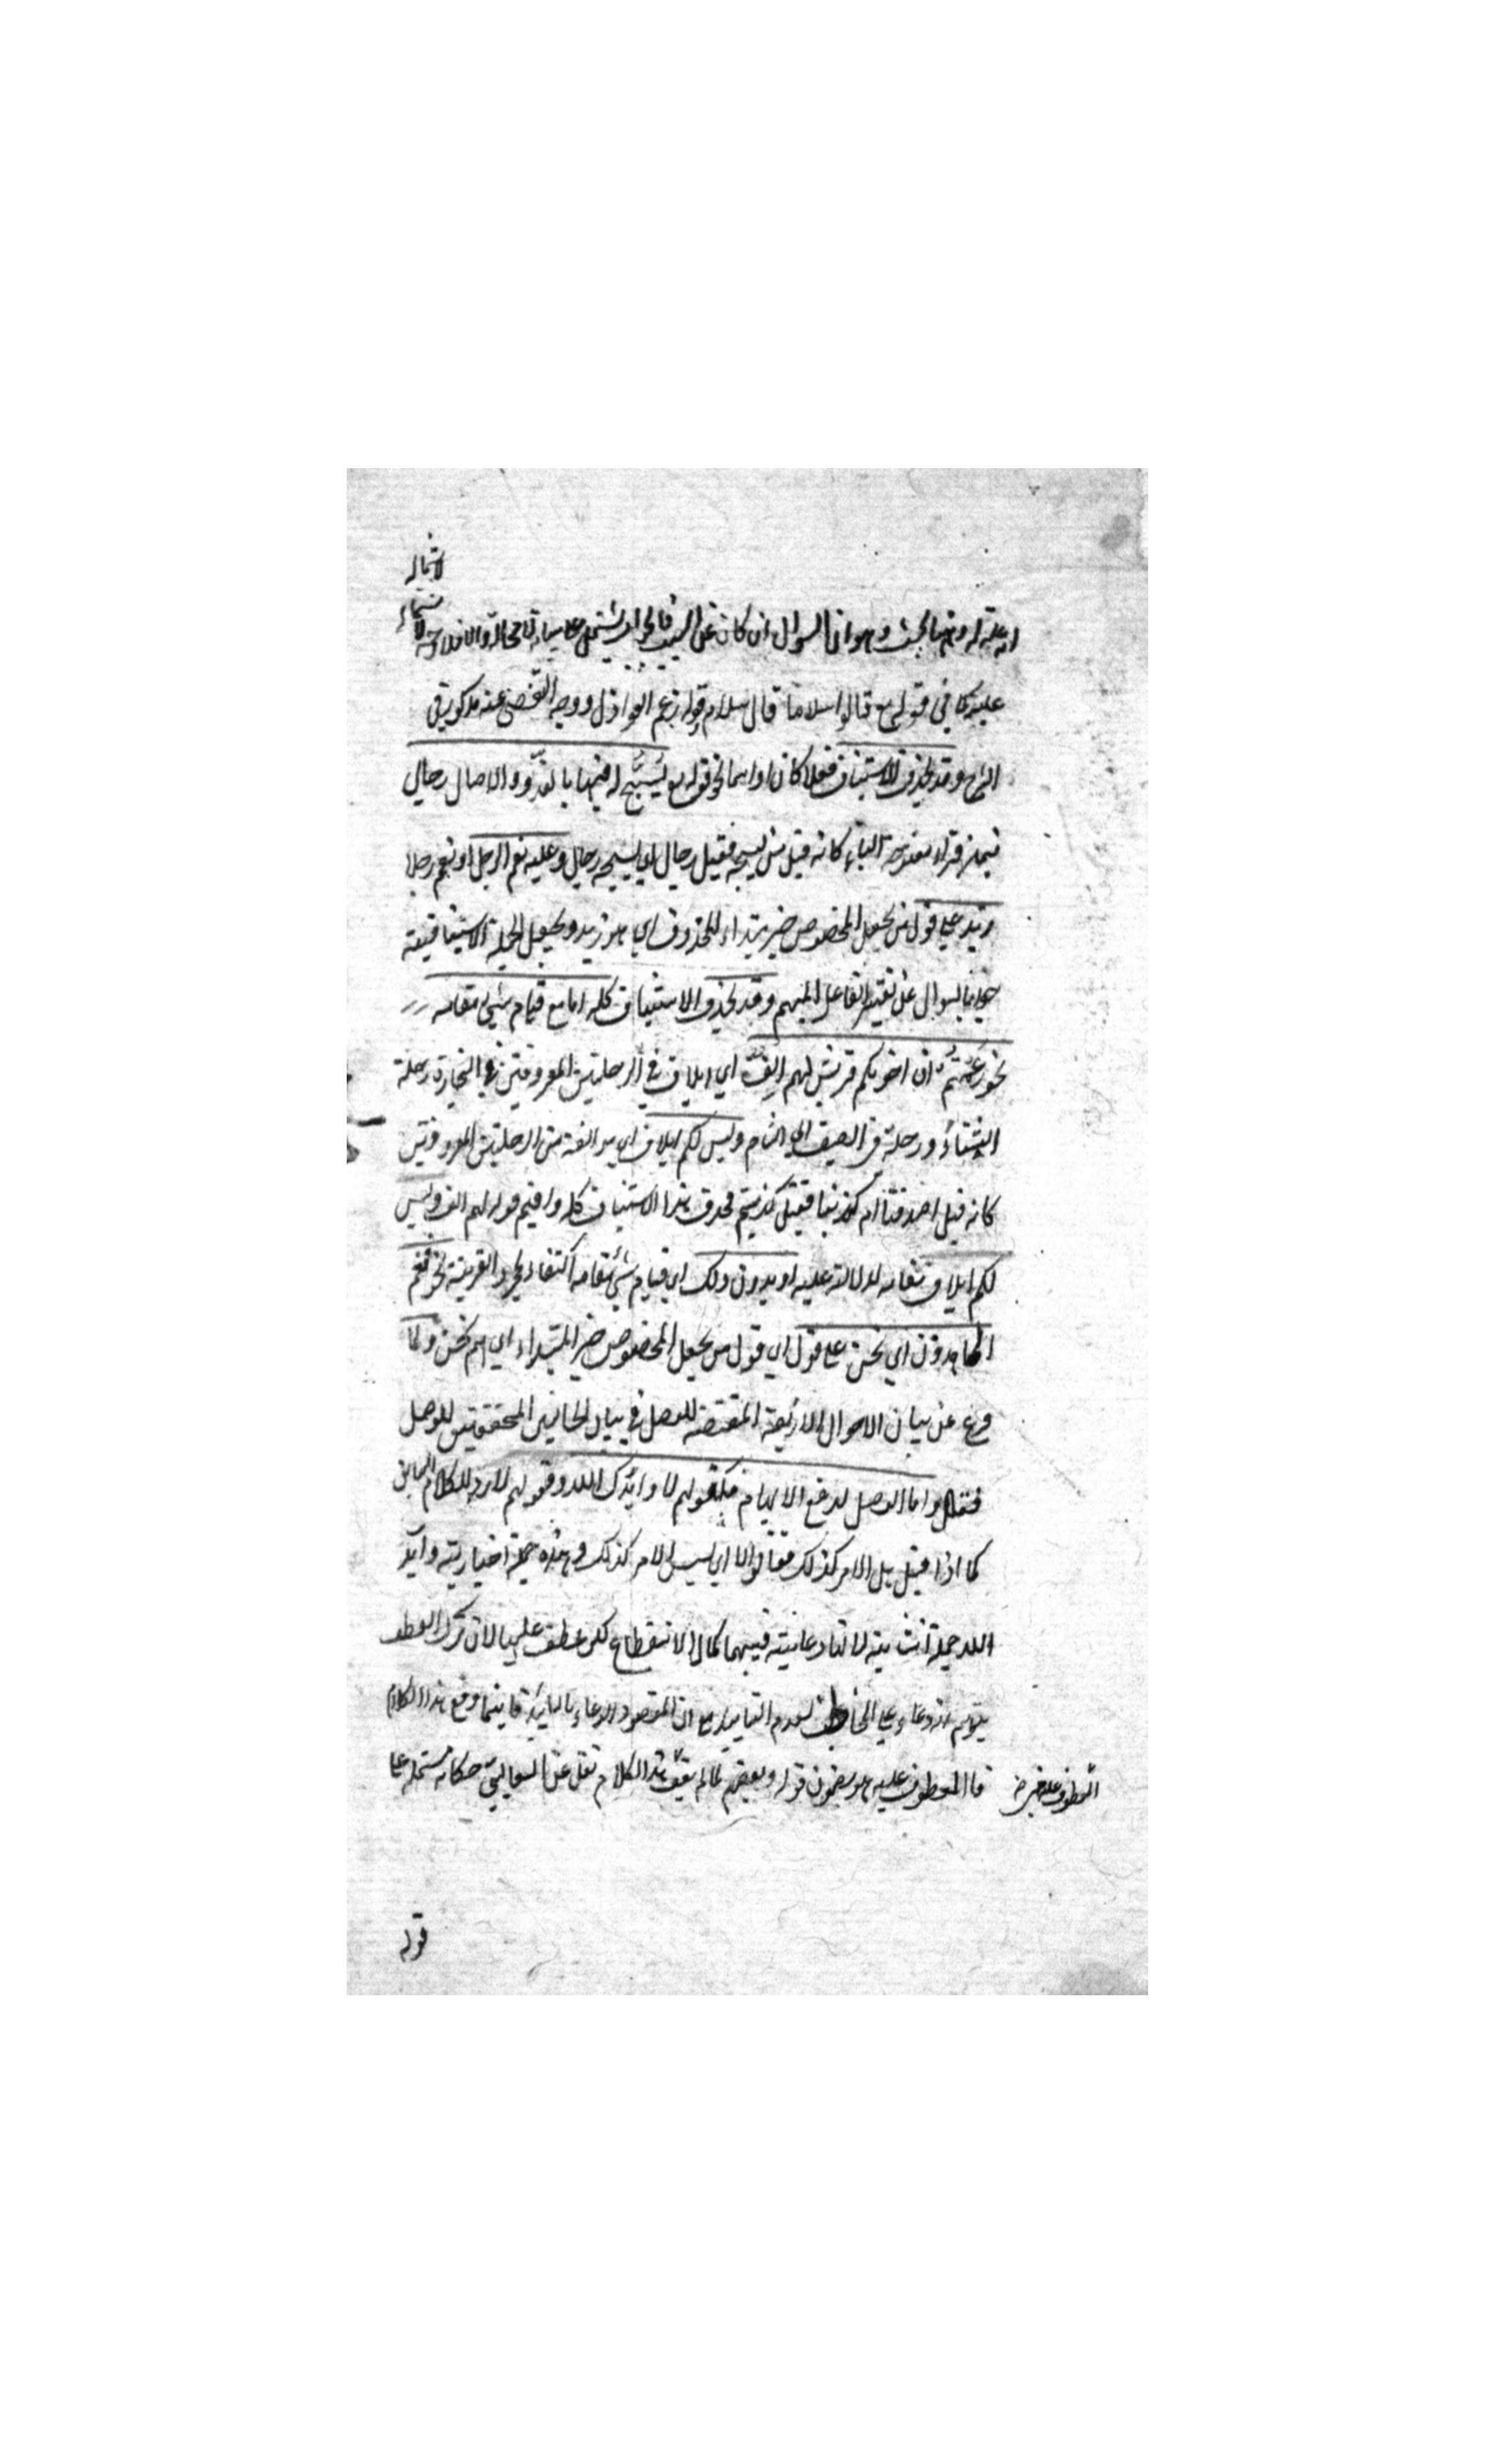 لاشتماله
اهليته له وههنا بحث وهو ان السوال ان كان عن السبب فالجواب يشتمل على بيانه لا محالة والا فلا وجه لاشتماله
عليه كما في قوله تع قالوا سلاما قال سلام وقوله زعم العواذل ووجه التفصي عنه مذكور في
الشرح وقد يحذف صدر الاستيناف فعلا كان او اسما نحو قوله تع يُسَبَّح له فيها بالغدو والاصال رجال
فيمن قراء مفتوحة الباء كانه قيل من يسبحه فقيل رجال اي يسبحه رجال وعليه نعم الرجل او نعم رجلا
زيد على قول من يجعل المخصوص خبر مبتداء المحذوف اي هو زيد ويجعل الجملة الاستينافية
جوابا لسوال عن تفسير الفاعل المبهم وقد يحذف الاستيناف كله اما مع قيام شئ مقامه
نحو زعمتم ان اخوتكم قريش لهم اِلفٌ اي ايلاف في الرحلتين المعروفتين في التجارة رحلة
الشتاء ورحلة في الصيف الى الشام وليس لكم ايلاف اي مؤالفة من الرحلتين المعروفتين
كانه قيل اصدقنا ام كذبنا فقيل كذبتم فحذف هذا الاستيناف كله واقيم قوله لهم الف وليس
لكم ايلاف مقامه لدلالته عليه او بدون ذلك اي قيام شئ مقامه اكتفاء بمجرد القرينة نحو فنعم
الماهدون اي نحن على قول اي قول من يجعل المخصوص خبر المبتداء اي هم نحن ولما
فرغ عن بيان الاحوال الاربعة المقتضية للفصل في بيان الحالتين المحققتين للوصل
فقال واما الوصل لدفع الايهام فكقولهم لا وايدك الله وقولهم لا رد للكلام السابق
كما اذا قيل هل الامر كذلك فقالوا لا اي ليس الامر كذلك وهذه جملة اخبارية وايد
الله جملة انشائية لانها دعائية فبينهما كمال الانقطاع لكن عطف عليها لان ترك العطف
يتوهم انه دعاء على المخاطب لعدم التاييد مع ان المقصود الدعاء بالتاييد فاينما وقع هذا الكلام
فالمعطوف عليه هو مضمون قوله وبعضهم لما لم يقف هذا الكلام نقل عن الثعالبي حكاية مشتملة على
قوله